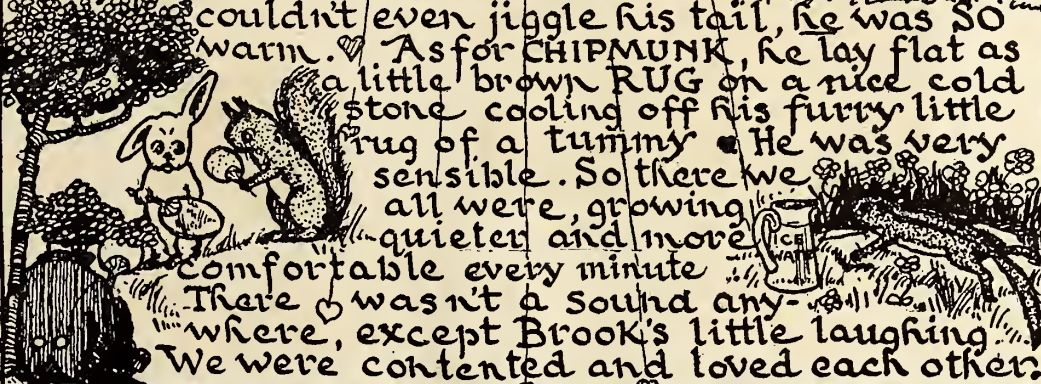 couldn't even jiggle his tail, he was SO
warm. As for CHIPMUNK, he lay flat as
a little brown RUG on a nice cold
stone cooling off his furry little
rug of a tummy He was very
sensible. So there we
all were, growing
quieter and more
ICE
WATER
comfortable every minute
There was n't a sound any-
where, except Brook's little laughing.
We were contented and loved each other.